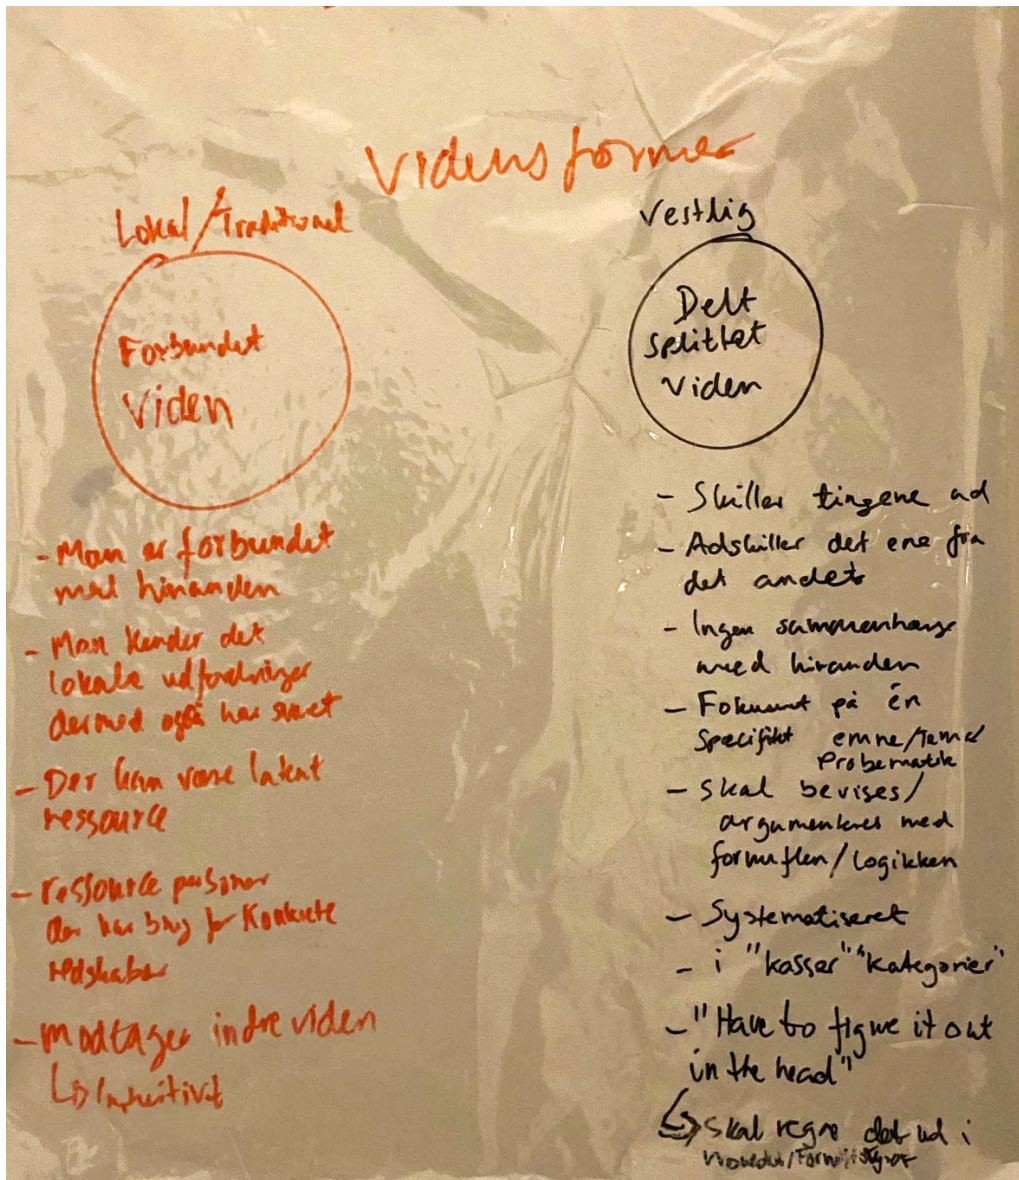 Vidensformer
Lokal/Traditionel
Forbundet
Viden
- Man er forbundet
med hinanden
- Man kender det
lokale udfordringer
dermed også har svaret
- Der kan være latent
ressource
- ressource personer
der har brug for Konkrete
redskaber
- Modtager indre viden
Vestlig
Delt
splittet
viden
- Skiller tingene ad
- Adskiller det ene fra
det andet
- Ingen sammenhæng
med hinanden
- Fokuseret på én
Specifikt emne/tema/
Probematik
- Skal bevises/
argumenteres med
/logikken
- Systematiseret
- i "kasser" "kategorier"
- "Have to figure it out
in the head"
↳ Skal regne det ud i